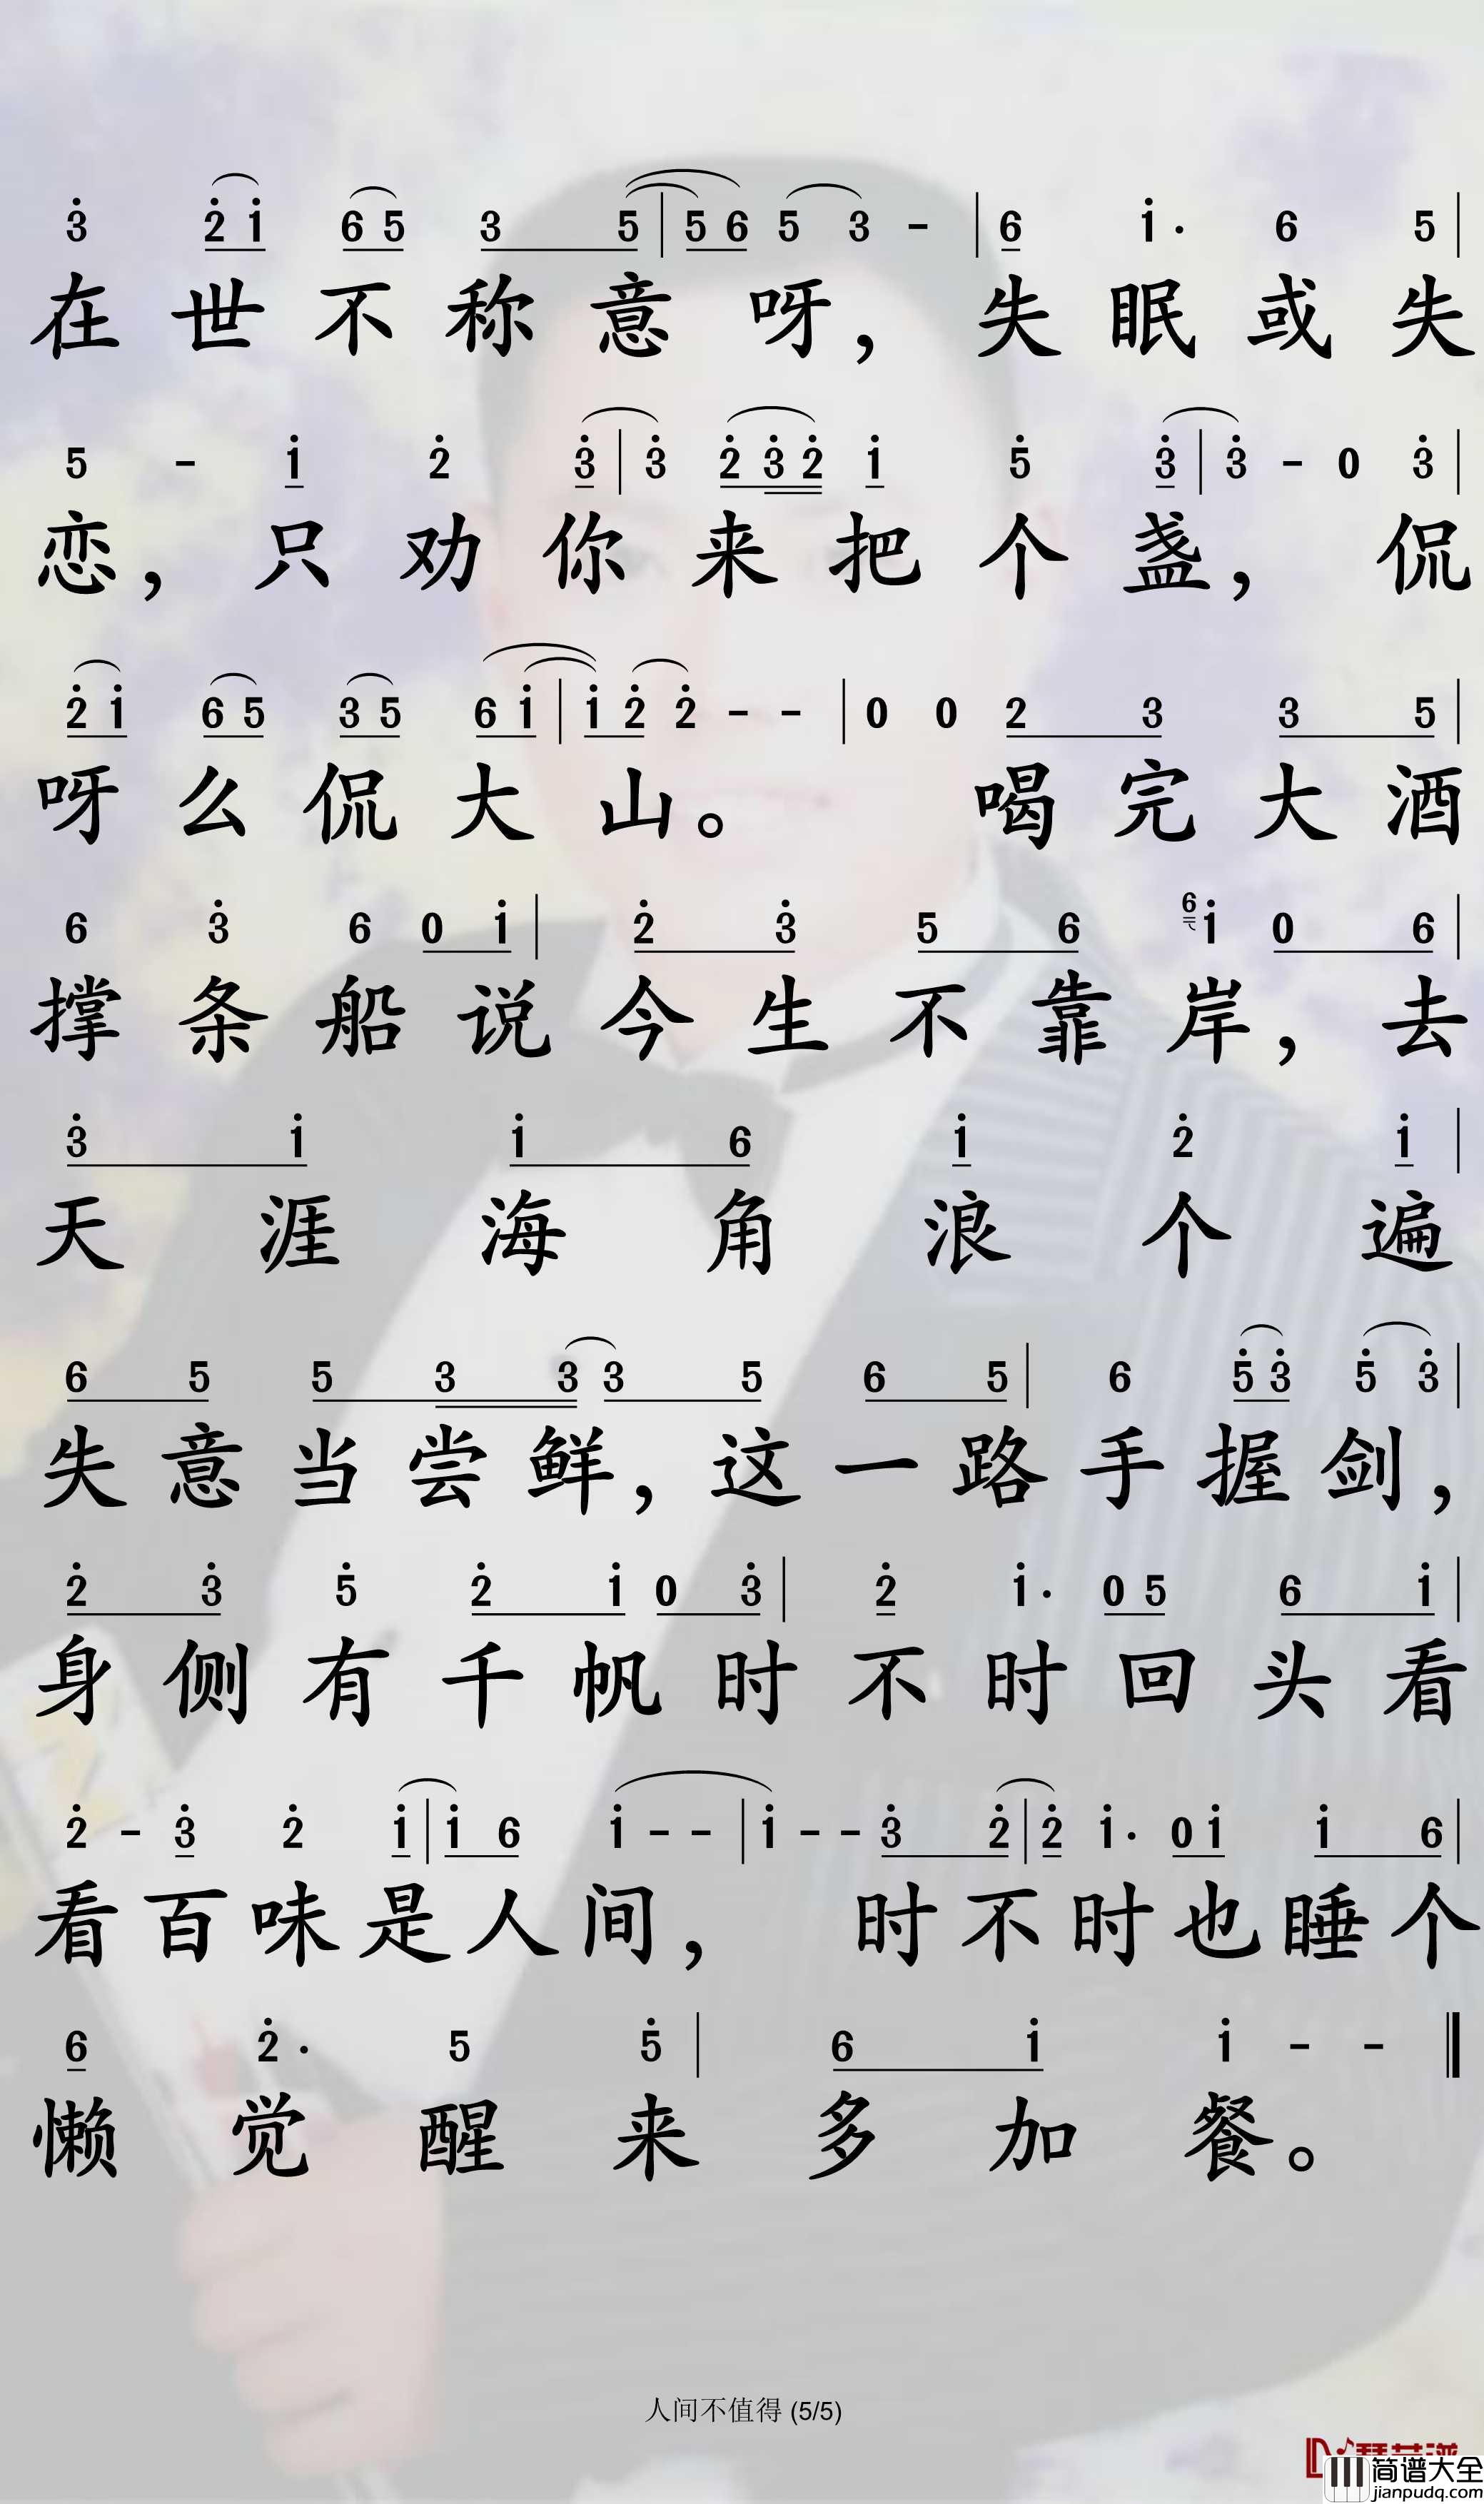 3 2 1 6 5 3 5 | 5 6 5 3 - | 6 1 · 6 5 |
在世不称意呀，失眠或失
5 - 1 2 3 | 3 2 3 2 1 5 3 | 3 - 0 3 |
恋，只劝你来把个盏，侃
2 1 6 5 3 5 6 1 | 1 2 2 - - | 0 0 2 3 3 5 |
呀么侃大山。喝完大酒
6 3 6 0 1 | 2 3 5 6 6 1 0 6 |
撑条船说今生不靠岸，去
3 1 1 6 1 2 1 |
天涯海角浪个遍
6 5 5 3 3 3 5 6 5 | 6 5 3 5 3 |
失意当尝鲜，这一路手握剑，
2 3 5 2 1 0 3 | 2 1 · 0 5 6 1 |
身侧有千帆时不时回头看
2 - 3 2 1 | 1 6 1 - - | 1 - - 3 2 | 2 1 · 0 1 1 6 |
看百味是人间，时不时也睡个
6 2 · 5 5 | 6 1 1 - -
懒觉醒来多加餐。
人间不值得 (5/5)
简谱大全
jianpudq.com